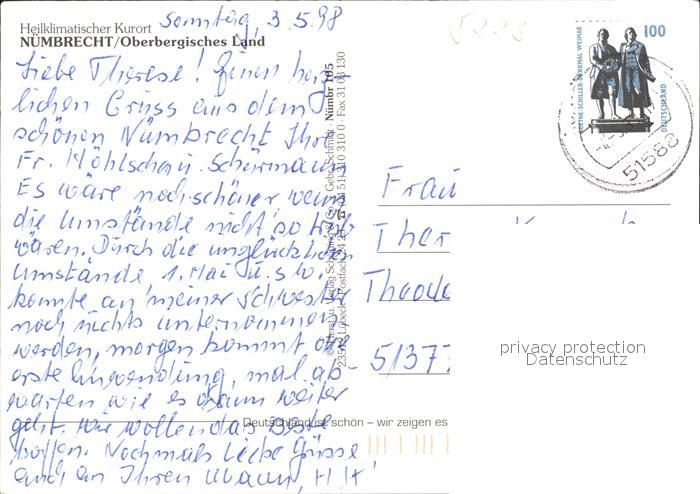 Sonntag, 3.5.98
Heilklimatischer Kurort
NÜMBRECHT/Oberbergisches Land
Liebe Therese! Einen herz-
lichen Gruss aus dem
schönen Nümbrecht Ihre
Fr. Möhlschau. Schürmann
Es wäre noch schöner wenn
die Umstände nicht so trüb
wären. Durch die unglücklichen
Umstände, 1. Mai u.s.w.
konnte an meiner Schwester
noch nichts unternommen
werden, morgen kommt die
erste Anwendung, mal ab-
warten wie es dann weiter
geht. Wir wollen das Beste
hoffen. Nochmals liebe Grüsse
auch an Ihren Mann, H H
Nümbr 105
Deutschland ist schön – wir zeigen es
100
GOETHE-SCHILLER-DENKMAL WEIMAR
DEUTSCHLAND
51588
Frau
Ther
Theodo
51377
privacy protection
Datenschutz